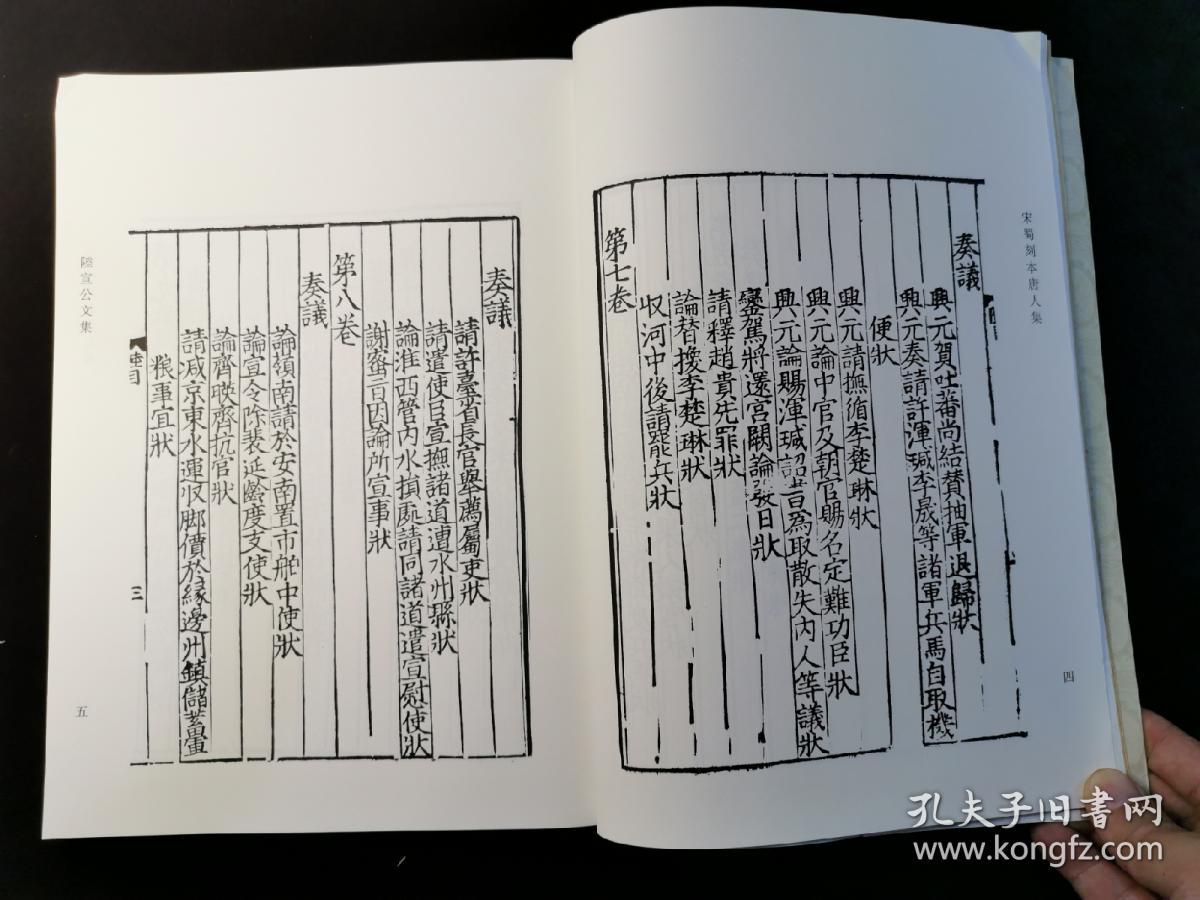 宋蜀刻本唐人集
奏議
興元賀吐蕃尚結贊抽軍退歸狀
興元奏請許渾瑊李晟等諸軍兵馬自取機
便狀
興元請撫循李楚琳狀
興元論中官及朝官賜名定難功臣狀
興元論賜渾瑊詔書爲取散失內人等議狀
鑾駕將還宮闕論發日狀
請釋趙貴先罪狀
論替換李楚琳狀
収河中後請罷兵狀
第七卷
四
奏議
請許臺省長官舉薦屬吏狀
請遣使臣宣撫諸道遭水州縣狀
論淮西管內水損處請同諸道遣宣慰使狀
謝密旨因論所宣事狀
第八卷
奏議
論嶺南請於安南置市舶中使狀
論宣令除裴延齡度支使狀
論齊暎齊抗官狀
請减京東水運収脚價於緣邊州鎮儲蓄
粮事宜狀
三
陸宣公文集
五
孔夫子旧书网
www.kongfz.com